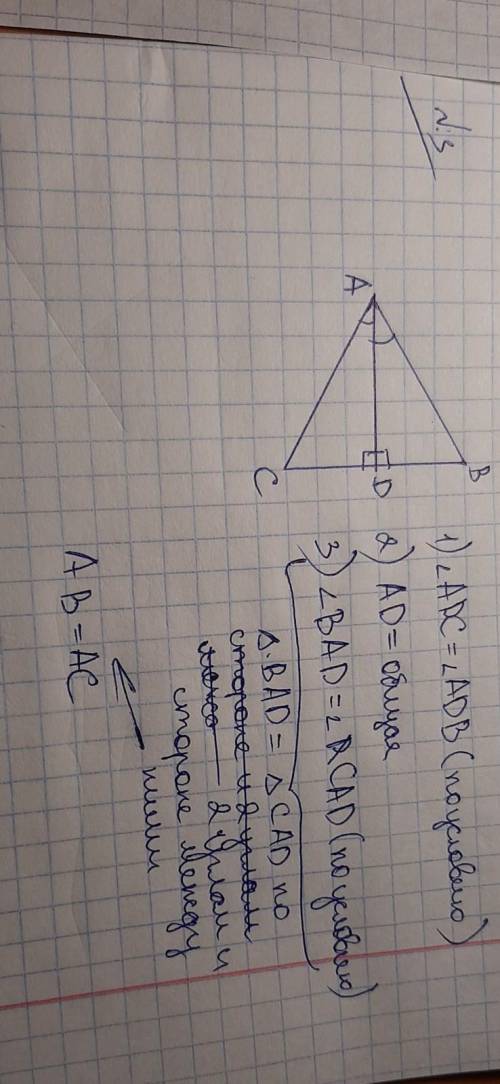 №3
A
B
C
D
1) ∠ADC = ∠ADB (по условию)
2) AD = общая
3) ∠BAD = ∠CAD (по условию)
△BAD = △CAD по
стороне и 2 углам
2 углам и
стороне между
ними
AB = AC